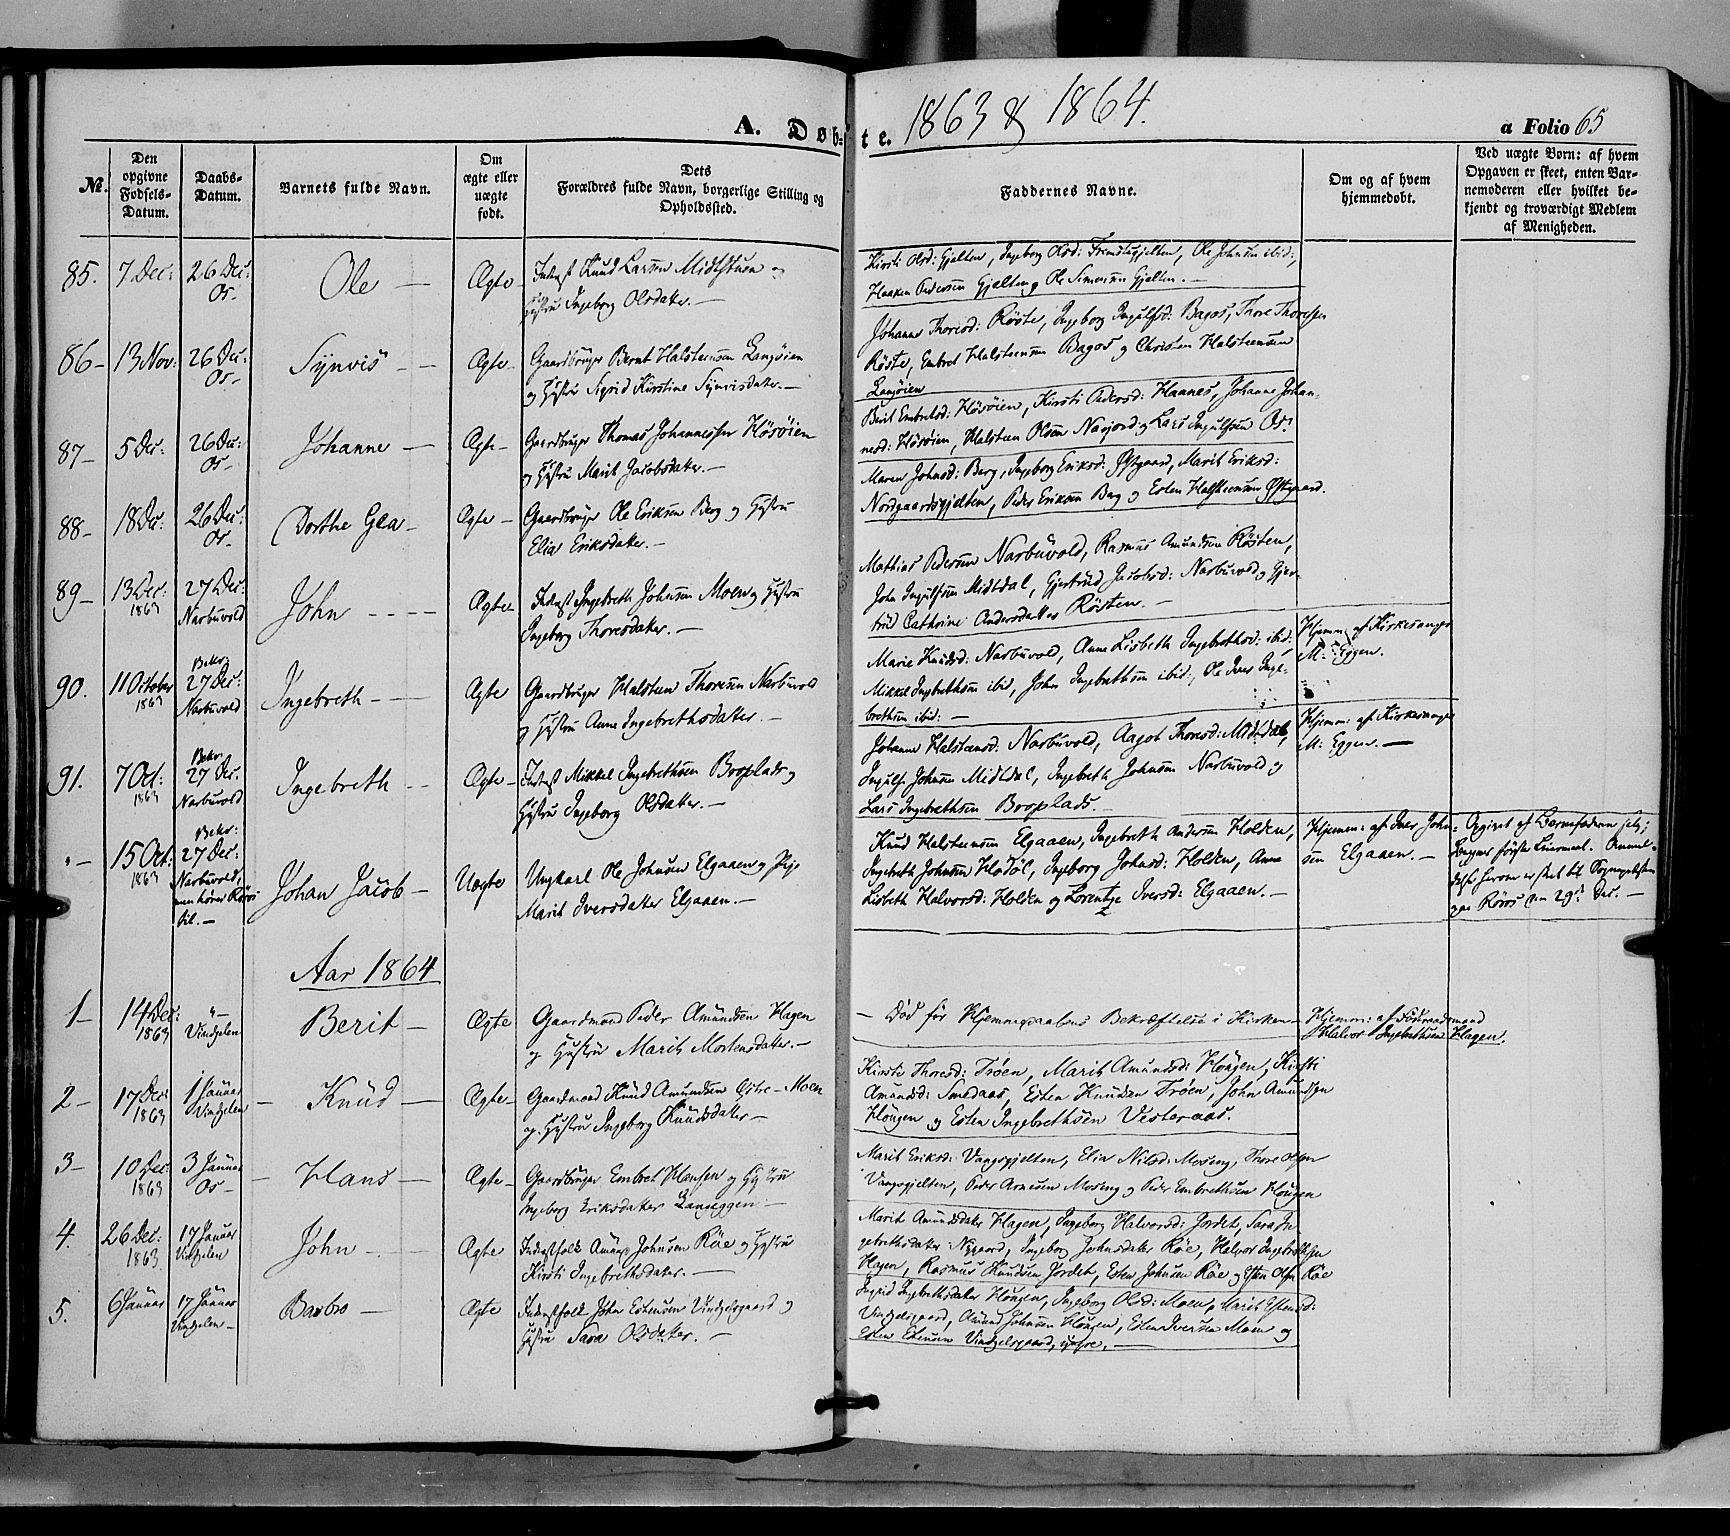 A. Døb-
te. 1863 & 1864.
a Folio 65
No.
Den opgivne Fødsels-Datum.
Daabs-Datum.
Barnets fulde Navn.
Om ægte eller uægte født.
Dets Forældres fulde Navn, borgerlige Stilling og Opholdssted.
Faddernes Navne.
Om og af hvem hjemmedøbt.
Ved uægte Børn: af hvem Opgaven er skeet, enten Barnemoderen eller hvilket bekjendt og troværdigt Medlem af Menigheden.
85. 7 Dec: 26 Dec: Os- Ole — Ægte
Inderst Knud Larsen Midtstuen og
Hustru Ingeborg Olsdater. —
Kirsti Olsd: Gjelten, Ingeborg Olsd: Fremstgjelten, Ole Johnsen ibid:,
Haaken Pedersen Gjelten og Ole Simensen Gjelten. —
86- 13 Nov: 26 Dec: Os- Synvis — Ægte-
Gaardbruger Bernt Halsteensen Langøien
og Hustru Sigrid Kirstine Synvisdater. —
Johanne Thoresd: Røste, Ingeborg Ingulfsd: Bagos, Thore Thoresen
Røste, Embret Halsteensen Bagos og Christen Halsteensen
Langøien
87- 5 Dec: 26 Dec: Os- Johanne — Ægte-
Gaardbruger Thomas Johannessen Hosøien
og Hustru Marit Jacobsdater. —
Berit Embretsd: Hosøien, Kirsti Pedersd: Haanes, Johanne Johan-
nesd: Hosøien, Halsteen Olsen Nasjord og Lars Ingulfsen Os.
88- 18 Dec: 26 Dec: Os- Dorthe Gea — Ægte-
Gaardbruger Ole Eriksen Berg og Hustru
Eliæ Eriksdater. —
Maren Johnsd: Berg, Ingeborg Eriksd: Østgaard, Marit Eriksd:
Nordgaardsgjelten, Peder Eriksen Berg og Esten Halsteensen Østgaard.
89- 13 Dec: 1863 27 Dec: Narbuvold John — Ægte-
Inderst Ingebreth Johnsen Moen og Hustru
Ingeborg Thoresdater. —
Mathias Pedersen Narbuvold, Rasmus Amundsen Røsten,
John Ingulfsen Midtdal, Gjertrud Jacobsd: Narbuvold og Gjer-
trud Cathrine Andersdatter Røsten. —
90. 11 October 1863 Bekr: 27 Dec: Narbuvold Ingebreth — Ægte
Gaardbruger Halsteen Thoresen Narbuvold
og Hustru Anne Ingebrethsdatter. —
Marie Knudsd: Narbuvold, Anne Lisbeth Ingebrethsd: ibid:
Mikkel Ingebrethsen ibid, John Ingebrethsen ibid:, Ole Iver Inge-
brethsen ibid: —
Hjemm: af Kirkesanger
M: Eggen.
91. 7 Oct: 1863 Bekr: 27 Dec. Narbuvold Ingebreth — Ægte-
Inderst Mikkel Ingebrethsen Booplads og
Hustru Ingeborg Olsdater. —
Johanne Halsteensd: Narbuvold, Aagot Thoresd: Midtdal,
Ingulf Johnsen Midtdal, Ingebreth Johnsen Narbuvold og
Lars Ingebrethsen Booplads. —
Hjemm: af Kirkesanger
M: Eggen. —
"- 15 Oct: 1863 Bekr: 27 Dec: Narbuvold, men hører Røros til. — Johan Jacob — Uægte
Ungkarl Ole Johnsen Elgaaen og Pige
Marit Iversdatter Elgaaen. —
Knud Halsteensen Elgaaen, Ingebreth Andersen Holden,
Ingebreth Johnsen Hodøl, Ingeborg Johnsd: Holden, Anne
Lisbeth Halvorsd: Holden og Lorentze Iversd: Elgaaen. —
Hjemm: af Iver John-
sen Elgaaen. —
Opgivet af Barnefaderen selv;
Begges første Leiermaal. Anmel-
delse herom er skeet til Sognepresten
paa Røros den 29de Dec. —
Aar 1864
1- 14 Dec: 1863 "- Vindgelen Berit — Ægte
Gaardmand Peder Amundsen Hagen
og Hustru Marit Mortensdatter. —
— Død før Hjemmedaabens Bekræftelse i Kirken —
Hjemm: af Føderaadsmand
Halvor Ingebrethsen Hagen.
2- 17 Dec: 1863 1 Januar Vindgelen — Knud — Ægte-
Gaardmand Knud Amundsen Østre-Moen
og Hustru Ingeborg Knudsdatter —
Kirsti Thoresd: Trøen, Marit Amundsd: Hougen, Kirsti
Amundsd: Smedaas, Esten Knudsen Trøen, John Amundsen
Hougen og Esten Ingebrethsen Vesteraas.
3- 10 Dec: 1863 3 Januar Os- — Hans — Ægte-
Gaardbruger Embret Hansen og Hustru
Ingeborg Eriksdatter Langeggen —
Marit Eriksd: Vangsgjelten, Eliæ Nilsd: Moseng, Thore Olsen
Vangsgjelten, Peder Arnesen Moseng og Peder Embrethsen Hougen
4. 26 Dec: 1863 17 Januar Vindgelen John — Ægte
Inderstfolk Amund Johnsen Røe og Hustru
Kirsti Ingebrethsdater. —
Marit Amundsdater Hagen, Ingeborg Halvorsd: Jordet, Sara In-
gebrethsdater Nygaard, Ingeborg Johnsdater Røe, Halvor Ingebrethsen
Hagen, Rasmus Knudsen Jordet, Esten Johnsen Røe og Esten Olsen Røe
5. 6 Januar 17 Januar Vindgelen — Barbro — Ægte
Inderstfolk John Estensen Vindgelsgaard og
Hustru Sara Olsdater. —
Ingrid Ingebrethsdater Hougen, Ingeborg Olsd: Moen, Marit Estensd:
Vindgelsgaard, Amund Johnsen Hougen, Esten Iversen Moen og
Esten Estensen Vindgelsgaard,